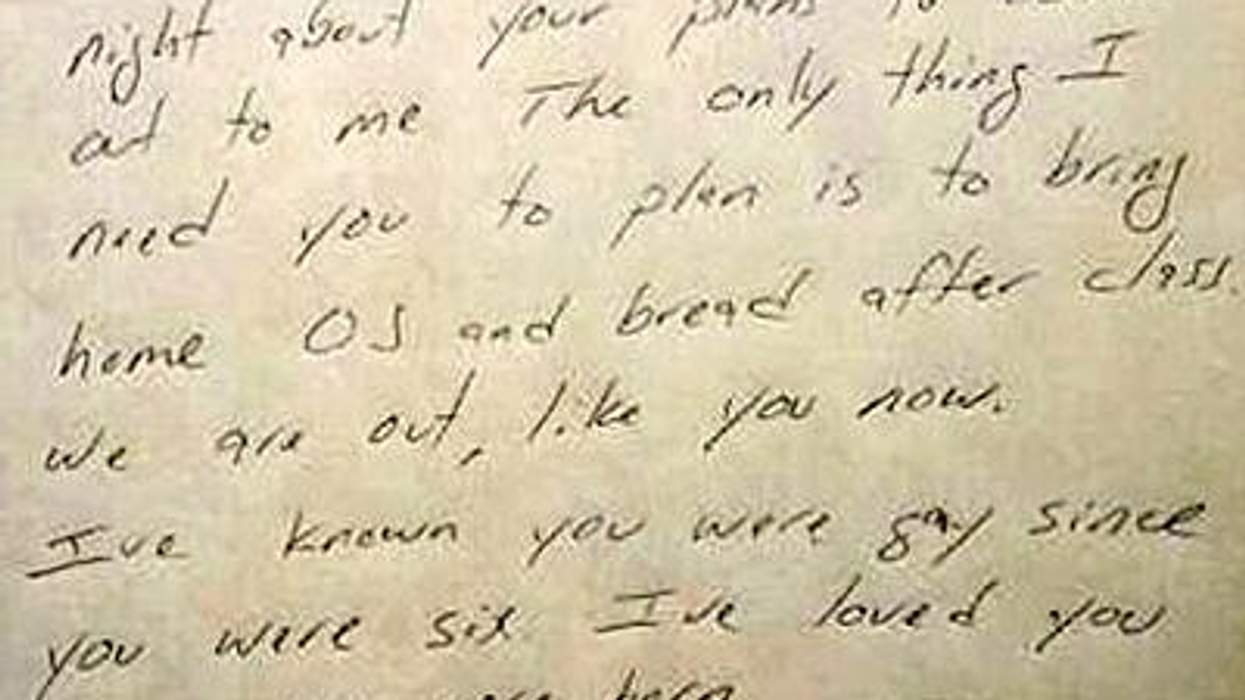 night about your plans to
out to me The only thing I
need you to plan is to bring
home OJ and bread after class.
we are out, like you now.
I've known you were gay since
you were six I've loved you
born